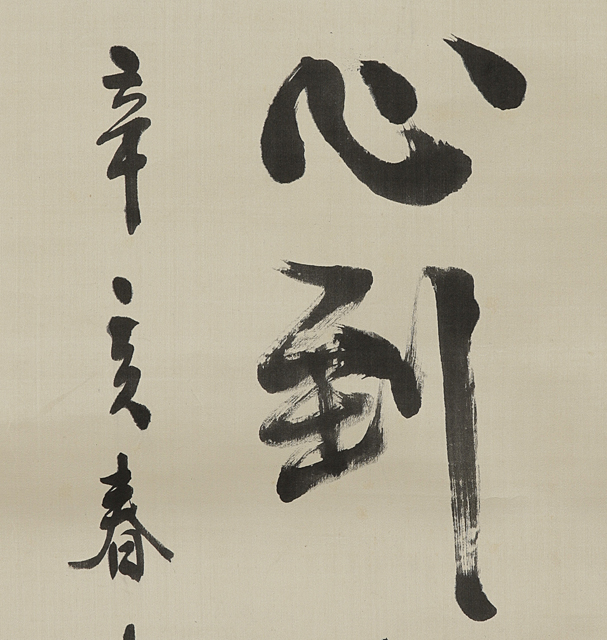 心到
辛亥春